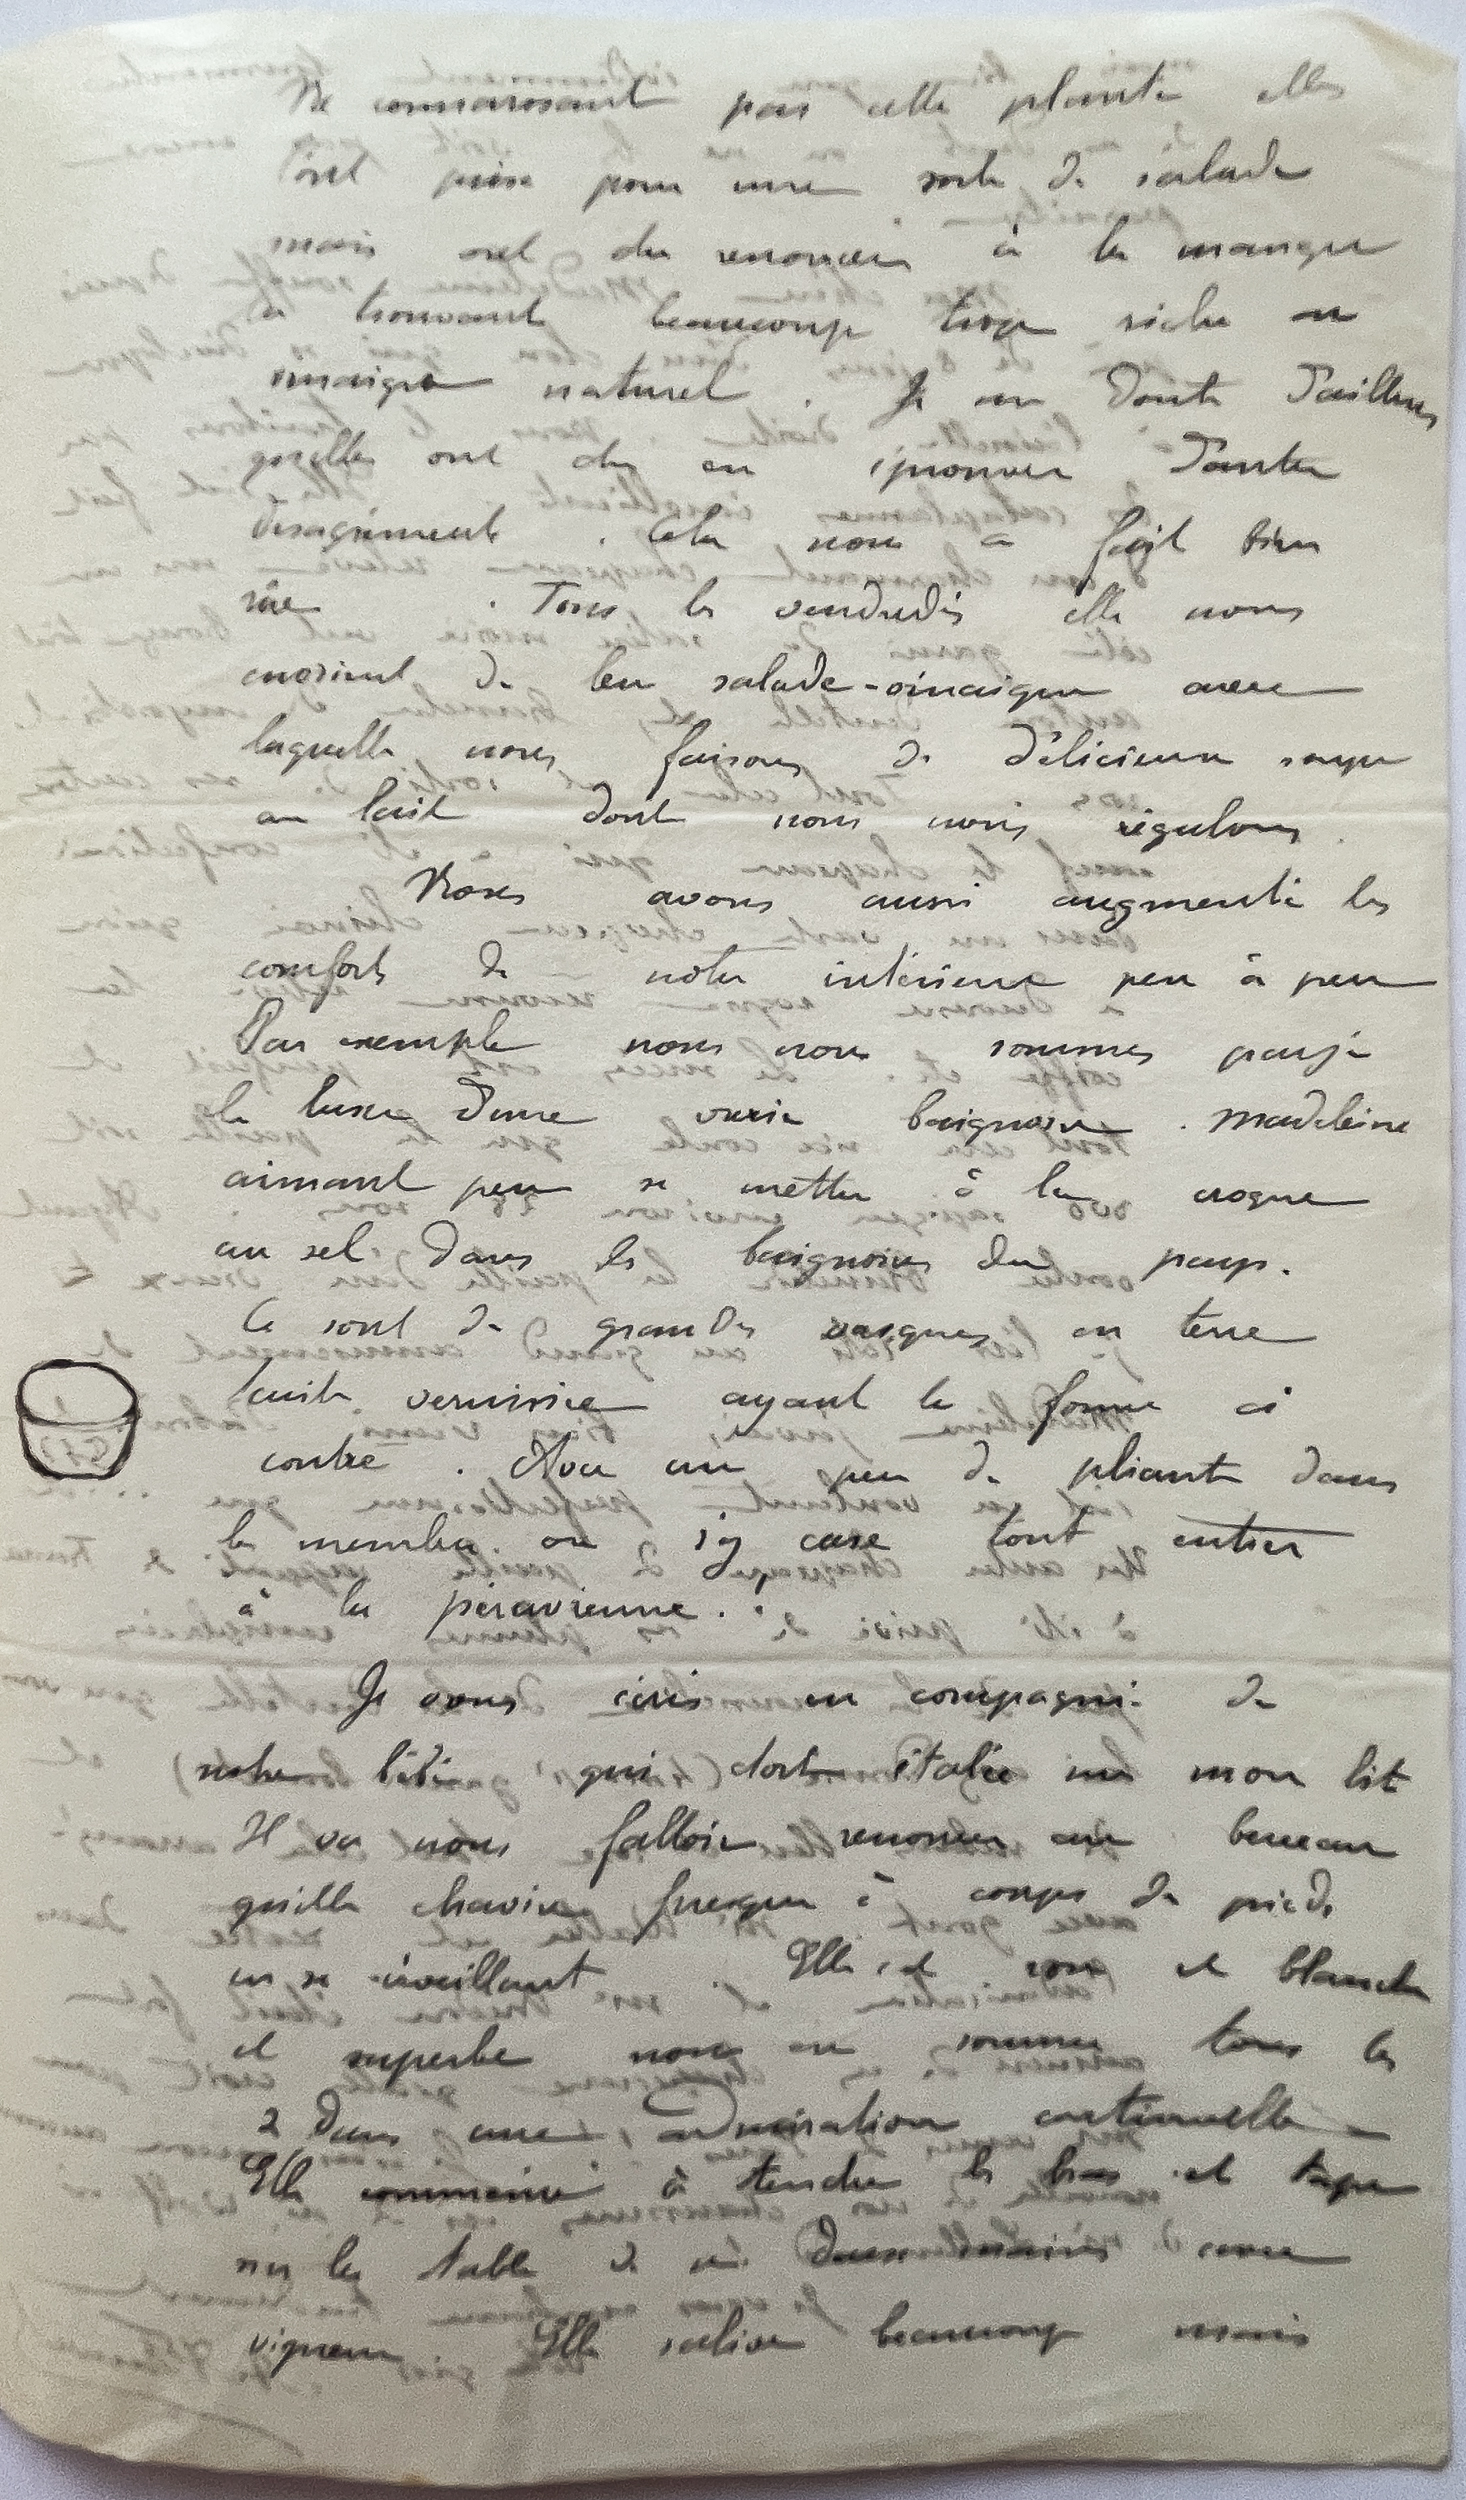 Ne connaissant pas cette plante elles
l'ont prise pour une sorte de salade
mais ont du renoncer à la manger
la trouvant beaucoup trop riche en
vinaigre naturel. Je me doute d'ailleurs
qu'elles ont du en éprouver d'autres
désagréments. Cela nous a fait bien
rire. Tous les vendredis elle nous
envoient de leur salade-vinaigre avec
laquelle nous faisons de délicieuse soupe
au lait dont nous nous régalons.
Nous avons aussi augmenté les
conforts de notre intérieur peu à peu
Par exemple nous nous sommes payé
le luxe d'une vraie baignoire. Madeleine
aimant peu se mettre à la croque
au sel dans les baignoires du pays.
Ce sont de grandes vasques en terre
cuite vernissée ayant la forme ci
contre. Avec un peu de pliant dans
les membres on s'y case tout entier
à la péruvienne.
Je vous écris en compagnie de
notre bébé qui dort étalée sur mon lit
Il va nous falloir renoncer au berceau
qu'elle chavire presque à coups de pieds
en se éveillant. Elle est rose et blanche
et superbe nous en sommes tous les
2 dans une admiration continuelle
Elle commence à tendre les bras et tape
sur la table de ses deux mains avec
vigueur. Elle salive beaucoup mais